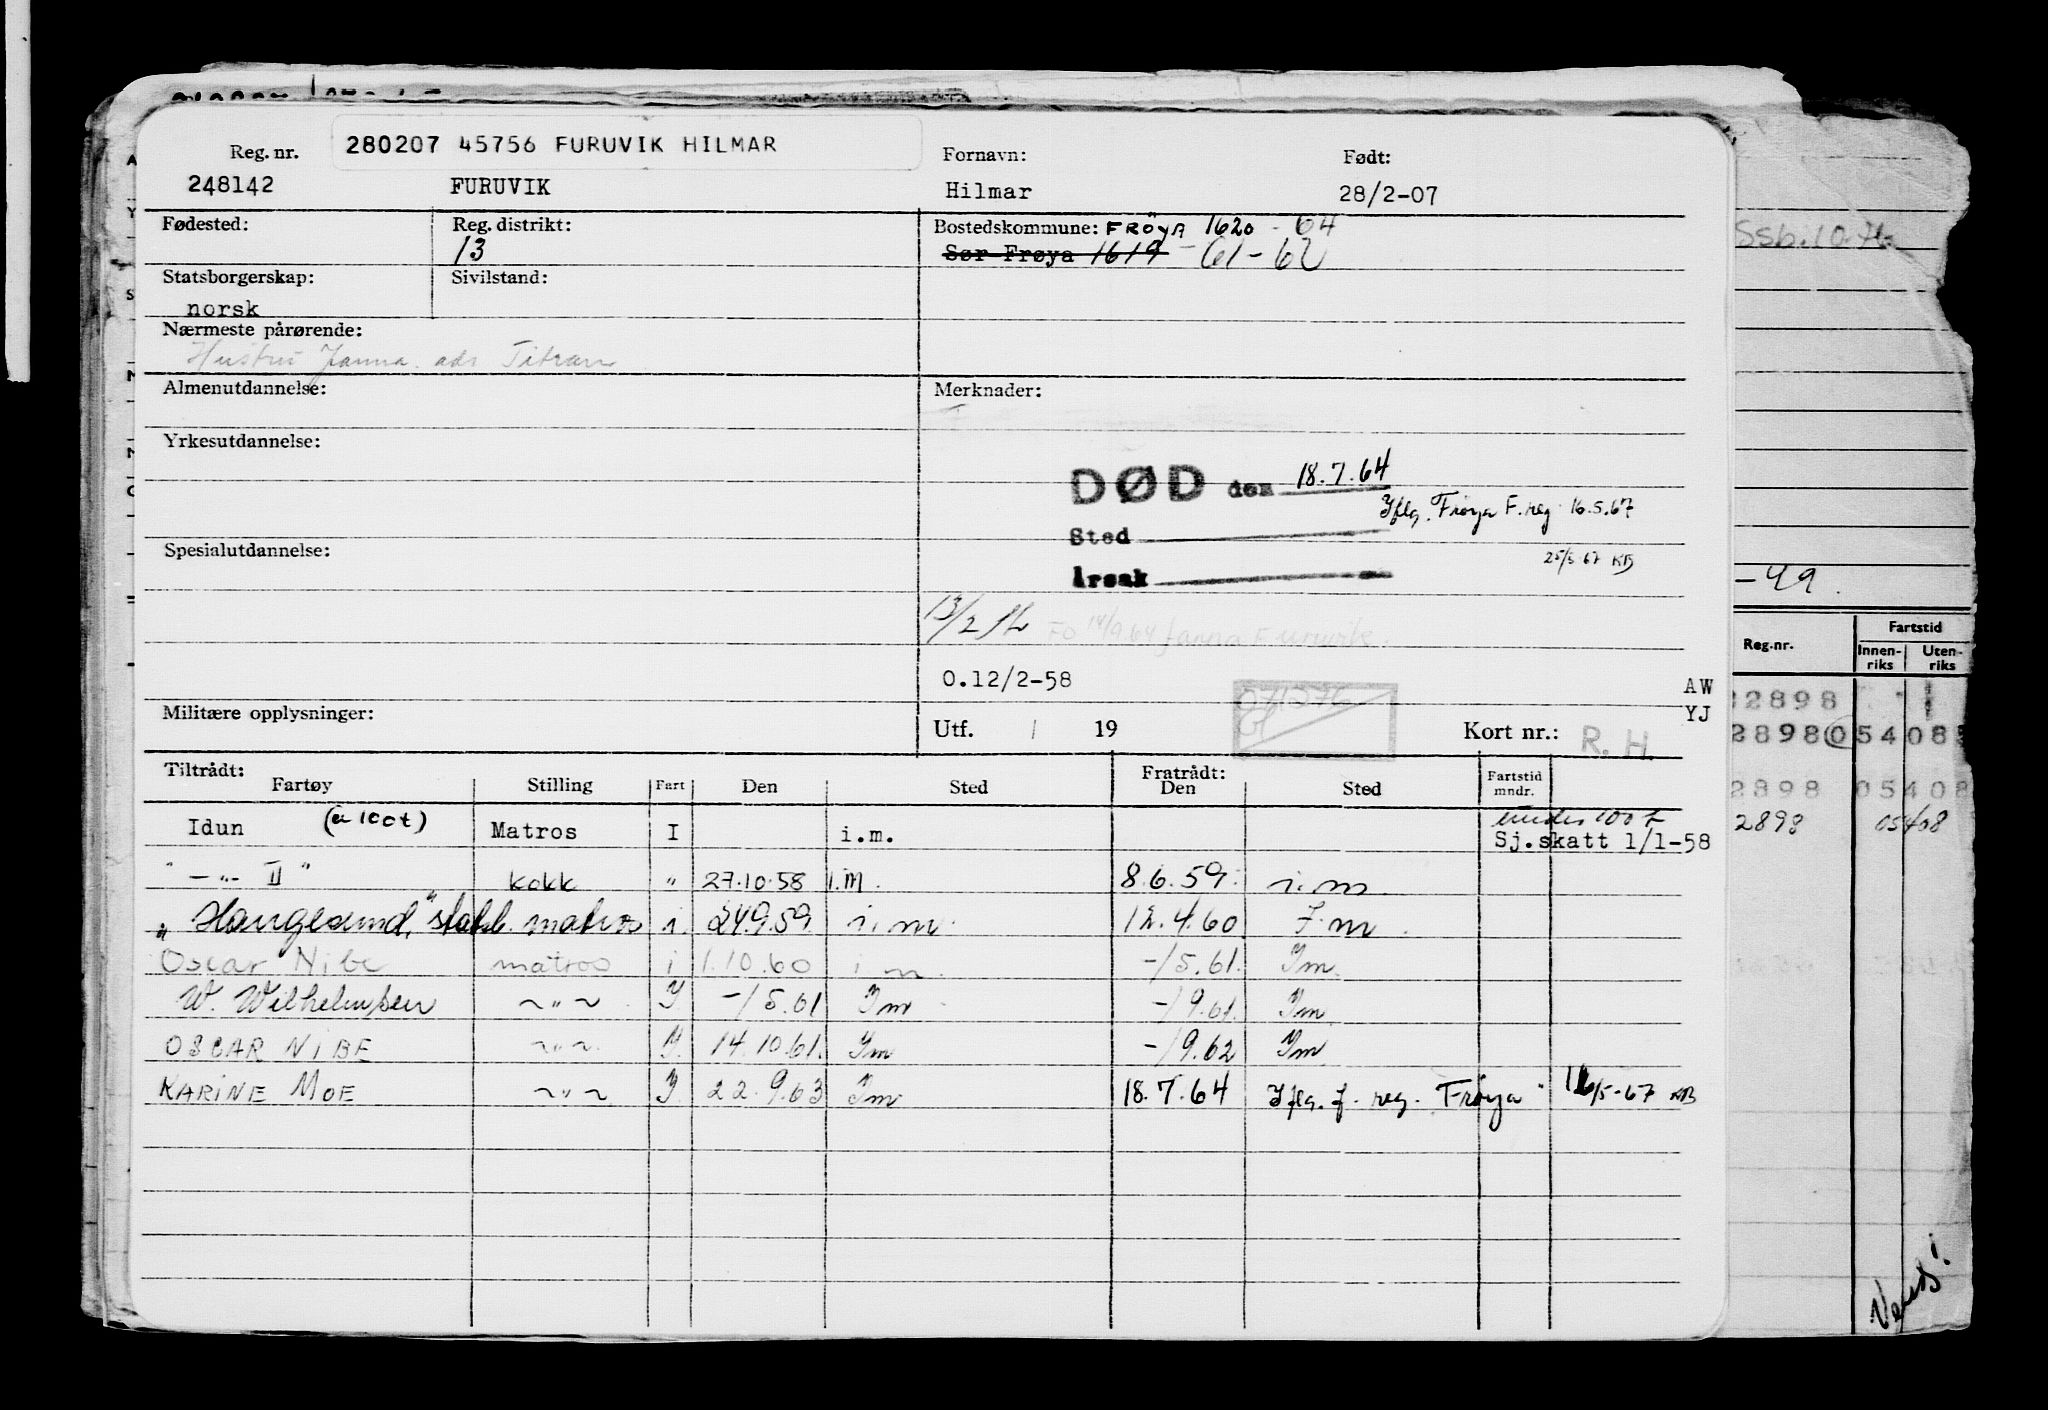 280207 45756 FURUVIK HILMAR
Reg. nr. Fornavn: Født:
248142 FURUVIK Hilmar 28/2-07
Fødested: Reg. distrikt: Bostedskommune: FRÖYA 1620 - 64
13 Sør-Frøya 1619 - 61-62
Statsborgerskap: Sivilstand:
norsk
Nærmeste pårørende:
Hustru Janna. adr Titran
Almenutdannelse: Merknader:
Yrkesutdannelse:
DØD den 18.7.64
Iflg. Frøya F. reg 16.5.67
Sted
Spesialutdannelse: 25/5-67 KB
Årsak
13/2 FO 14/9 64 Janna Furuvik.
0.12/2-58
AW
YJ
Militære opplysninger: Utf. / 19 Kort nr.: R. H.
Tiltrådt: Fratrådt:
Fartøy Stilling Fart Den Sted Den Sted Fartstid mndr.
under 100 t
Idun (a 100t) Matros I i.m. Sj.skatt 1/1-58
" -"- II " kokk " 27.10.58 i.m. 8.6.59. i.m.
" Hauglund," matros i. 24.9.59. i.m. 12.4.60 I.m.
Oscar Nibe matros i 1.10.60 i m. -/5.61. Im.
W. Wilhelmsen ~"~ I -/5.61 Im -/9.61. Im
OSCAR NIBE ~"~ I. 14.10.61. Im -/9.62 Im
KARINE MOE ~"~ I. 22.9.63 Im 18.7.64 Iflg. f. reg. Frøya 16/5-67 KB
Ssb.10.76
-49.
Reg.nr. Fartstid
Innen-riks Uten-riks
2898
2898 054 08
2898 05408
2898 05408
Vend!